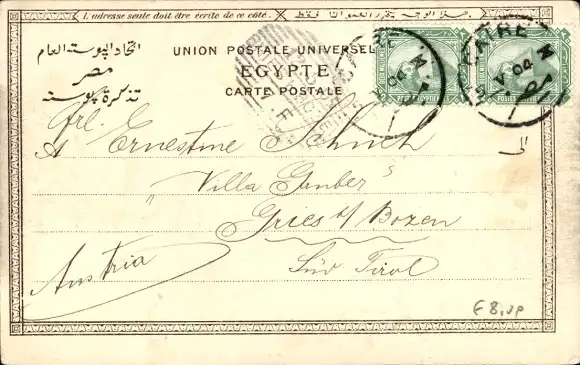 L'adresse seule doit être écrite de ce côté.
هذا الوجه يحرر العنوان فقط
اتحاد البوستة العام
مصر
تذكرة بوستة
UNION POSTALE UNIVERSELLE
EGYPTE
CARTE POSTALE
CAIRE
V 04
Frl.
A Ernestine Schuch
"Villa Gruber"
Gries b/ Bozen
Süd Tirol
Austria
الى
€ 8,00